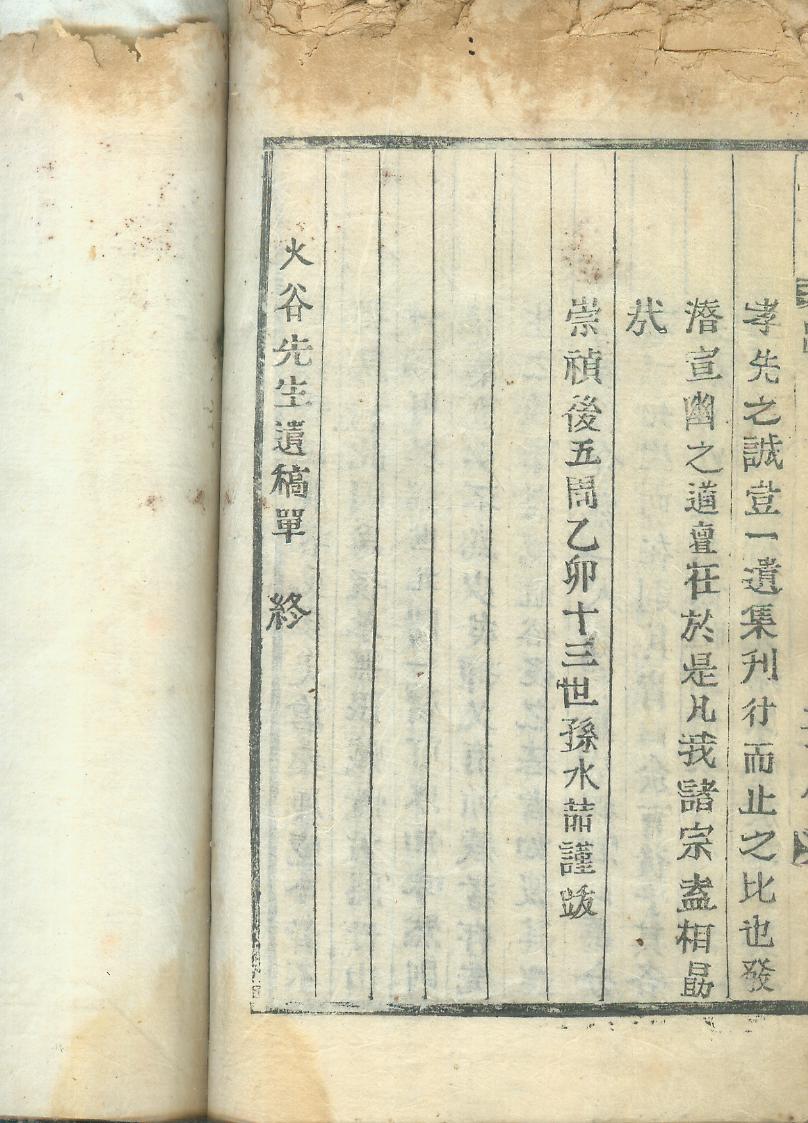 孝先之誠豈一遺集刊行而止之比也發
潛宣幽之道亶在於是凡我諸宗盍相勗
㢤
崇禎後五周乙卯十三世孫水喆謹跋
火谷先生遺稿單 終